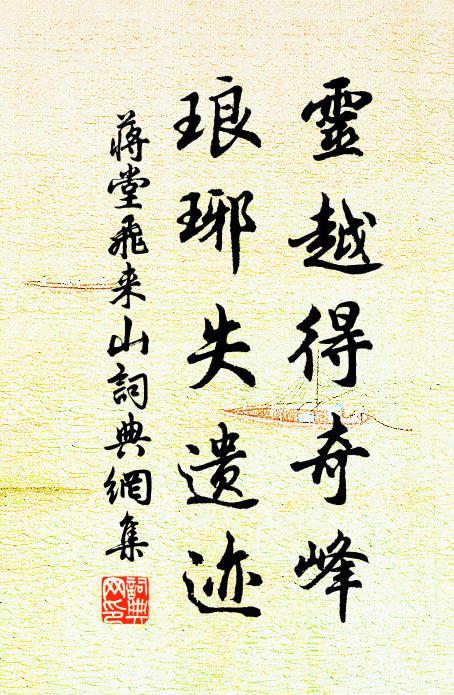 靈越得奇峰
琅琊失遗迹
蔣堂飛来山詞典網集
詞典网印